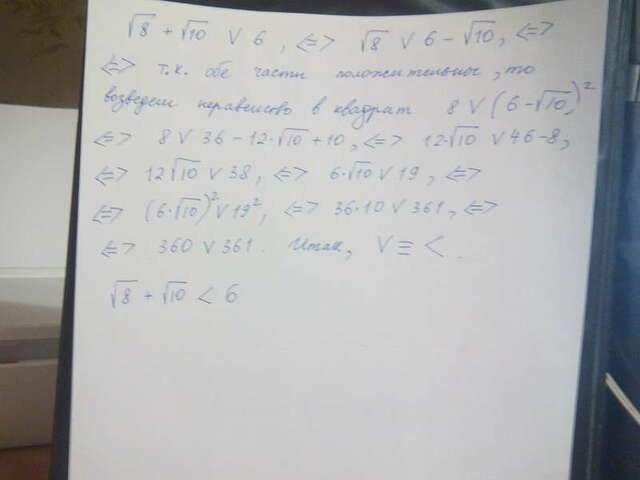 √8 + √10 ∨ 6 , <=> √8 ∨ 6 - √10, <=>
<=> т.к. обе части положительные, то
возведем неравенство в квадрат 8 ∨ (6 - √10)²
<=> 8 ∨ 36 - 12·√10 + 10, <=> 12·√10 ∨ 46-8,
<=> 12√10 ∨ 38, <=> 6·√10 ∨ 19, <=>
<=> (6·√10)² ∨ 19², <=> 36·10 ∨ 361, <=>
<=> 360 ∨ 361. Итак, ∨ ≡ < .
√8 + √10 < 6